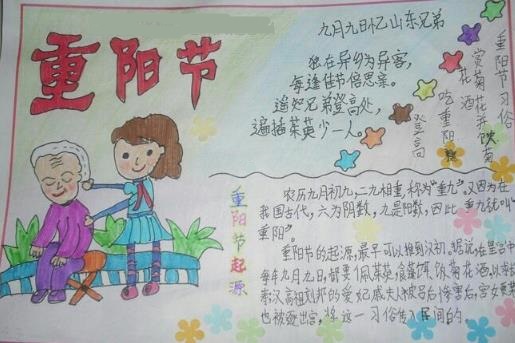 重阳节
九月九日忆山东兄弟
独在异乡为异客，
每逢佳节倍思亲。
遥知兄弟登高处，
遍插茱萸少一人。
重阳节习俗
赏菊花并饮菊
花酒
吃重阳糕
登高
重阳节起源
农历九月初九，二九相重，称为“重九”。又因为在
我国古代，六为阴数，九是阳数，因此“重九就叫”
重阳”。
重阳节的起源，最早可以推到汉初。据说在皇宫中
每年九月九日，都要佩茱萸，食蓬饵，饮菊花酒，以求长
寿汉高祖刘邦的爱妃戚夫人被吕后惨害后，宫女贾某
也被逐出宫，将这一习俗传入民间的。